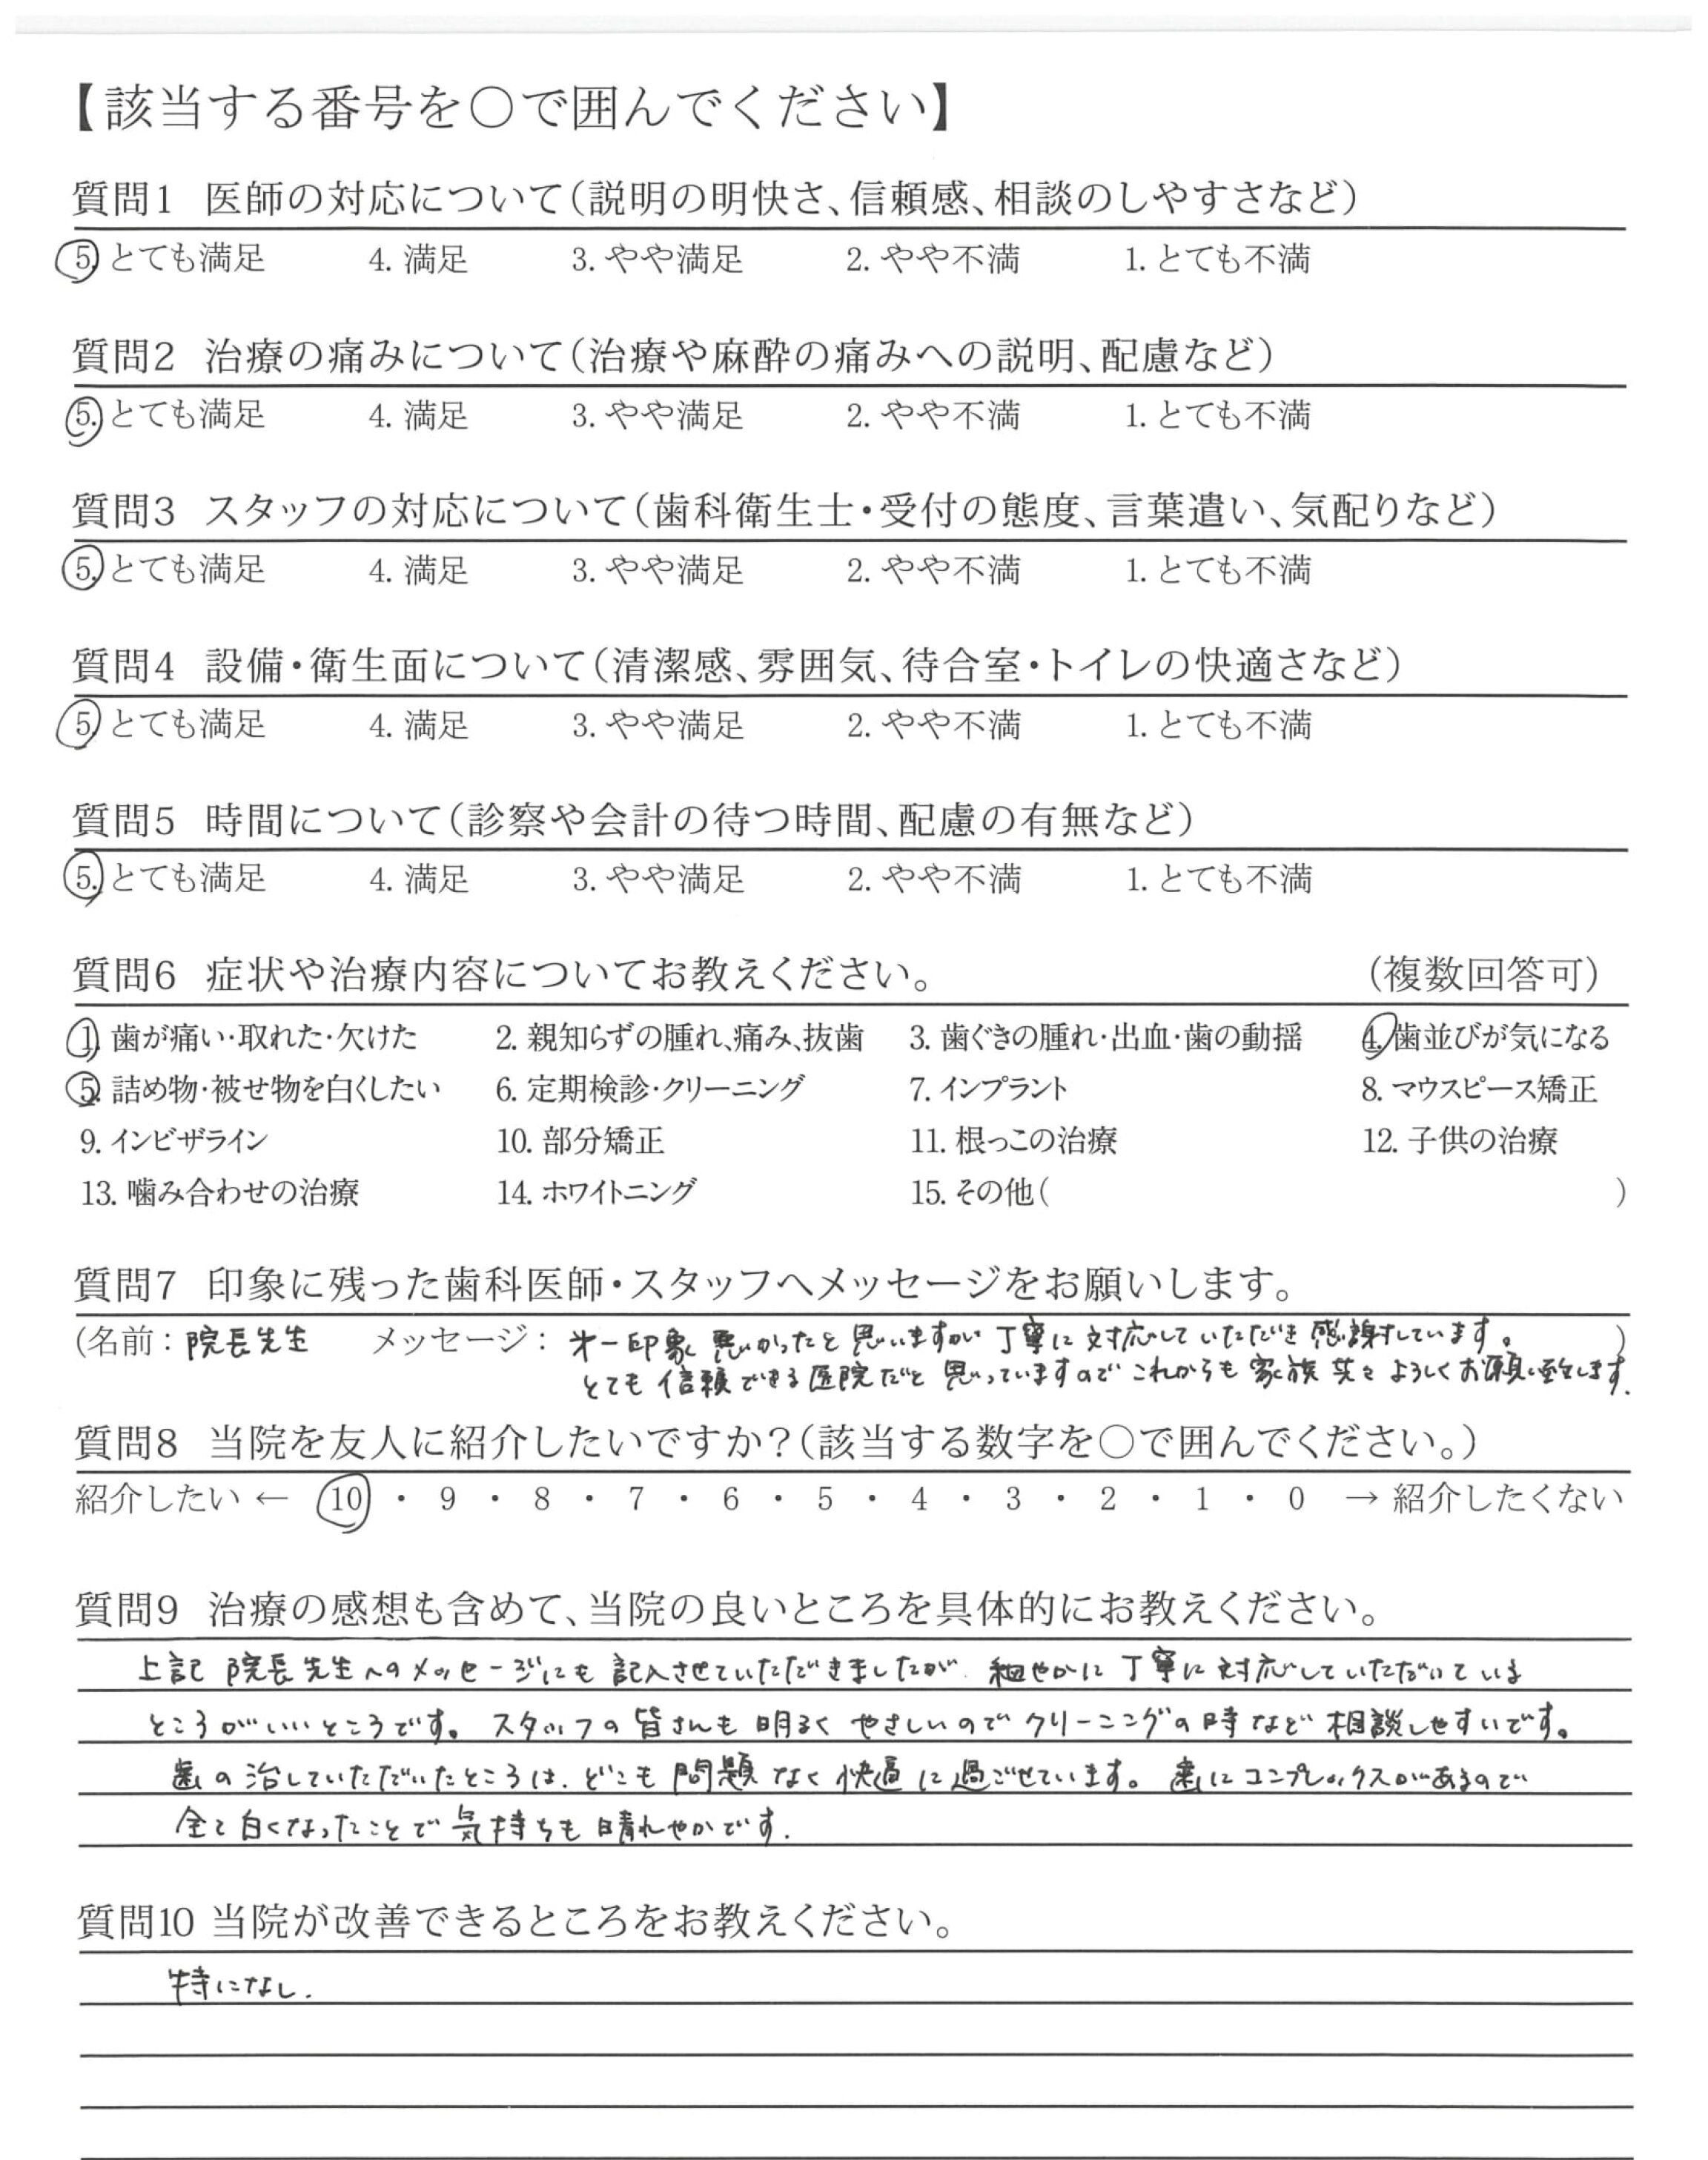 【該当する番号を○で囲んでください】
質問1 医師の対応について(説明の明快さ、信頼感、相談のしやすさなど)
5. とても満足 4. 満足 3. やや満足 2. やや不満 1. とても不満
質問2 治療の痛みについて(治療や麻酔の痛みへの説明、配慮など)
5. とても満足 4. 満足 3. やや満足 2. やや不満 1. とても不満
質問3 スタッフの対応について(歯科衛生士・受付の態度、言葉遣い、気配りなど)
5. とても満足 4. 満足 3. やや満足 2. やや不満 1. とても不満
質問4 設備・衛生面について(清潔感、雰囲気、待合室・トイレの快適さなど)
5. とても満足 4. 満足 3. やや満足 2. やや不満 1. とても不満
質問5 時間について(診察や会計の待つ時間、配慮の有無など)
5. とても満足 4. 満足 3. やや満足 2. やや不満 1. とても不満
質問6 症状や治療内容についてお教えください。 (複数回答可)
1. 歯が痛い・取れた・欠けた 2. 親知らずの腫れ、痛み、抜歯 3. 歯ぐきの腫れ・出血・歯の動揺 4. 歯並びが気になる
5. 詰め物・被せ物を白くしたい 6. 定期検診・クリーニング 7. インプラント 8. マウスピース矯正
9. インビザライン 10. 部分矯正 11. 根っこの治療 12. 子供の治療
13. 噛み合わせの治療 14. ホワイトニング 15. その他( )
質問7 印象に残った歯科医師・スタッフへメッセージをお願いします。
(名前: 院長先生 メッセージ: 才一印象 悪かったと思いますが 丁寧に対応していただき感謝しています。 )
とても信頼できる医院だと思っていますので これからも 家族共々 よろしくお願い致します.
質問8 当院を友人に紹介したいですか?(該当する数字を○で囲んでください。)
紹介したい ← 10 ・ 9 ・ 8 ・ 7 ・ 6 ・ 5 ・ 4 ・ 3 ・ 2 ・ 1 ・ 0 → 紹介したくない
質問9 治療の感想も含めて、当院の良いところを具体的にお教えください。
上記 院長先生へのメッセージにも 記入させていただきましたが、細やかに 丁寧に対応していただいている
ところがいいところです。スタッフの皆さんも 明るく やさしいので クリーニングの時など 相談しやすいです。
歯の治していただいたところは、どこも 問題なく 快適に過ごせています。歯にコンプレックスがあるので
全て白くなったことで 気持ちも 晴れやかです.
質問10 当院が改善できるところをお教えください。
特になし.